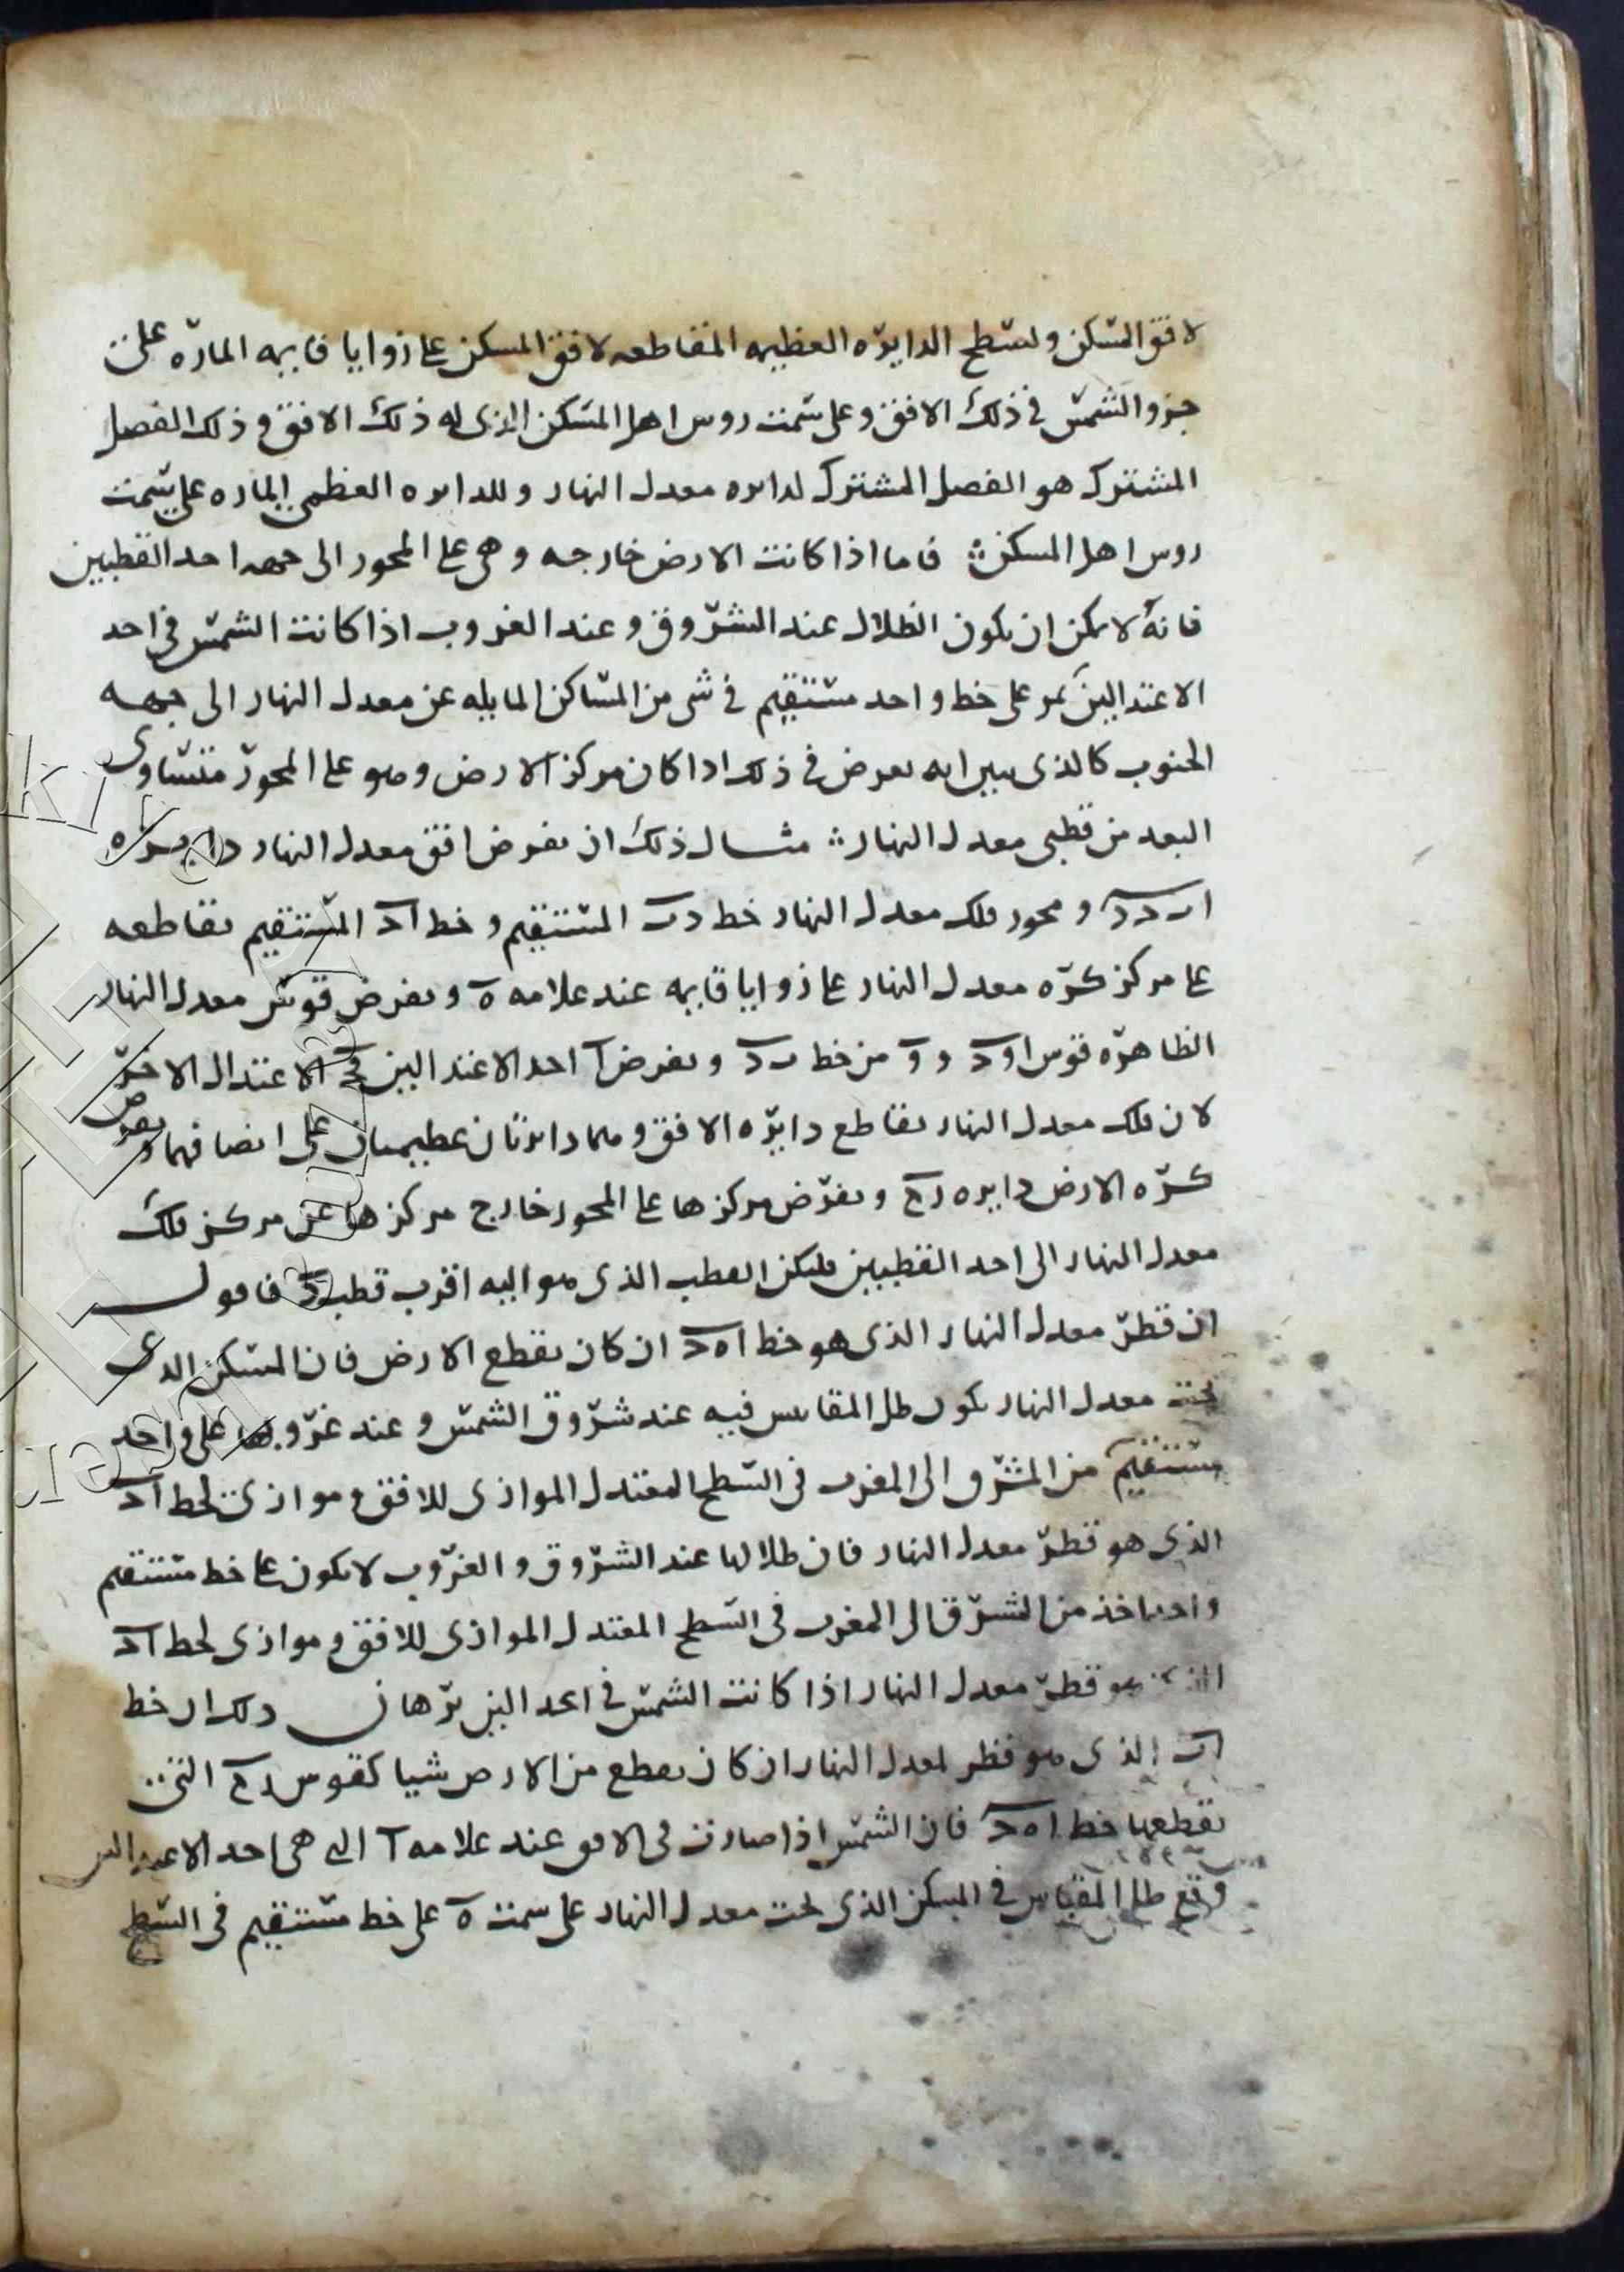 لافق المسكن ولسطح الدايره العظيمه المقاطعه لافق المسكن على زوايا قايمه الماره على
جزو الشمس فى ذلك الافق وعلى سمت روس اهل المسكن الذى له ذلك الافق وذلك الفصل
المشترك هو الفصل المشترك لدايره معدل النهار وللدايره العظمى الماره على سمت
روس اهل المسكن فاما اذا كانت الارض خارجه وهى على المحور الى جهه احد القطبين
فانه لا يمكن ان يكون الظلال عند الشروق وعند الغروب اذا كانت الشمس فى احد
الاعتدالين يمر على خط واحد مستقيم فى شى من المساكن المايله عن معدل النهار الى جهه
الجنوب كالذى يبين انه يعرض فى ذلك اذا كان مركز الارض وهو على المحور متساوى
البعد من قطبى معدل النهار مثال ذلك ان نفرض افق معدل النهار دايره
ا ب ج د ومحور فلك معدل النهار خط د ب المستقيم وخط ا ج المستقيم يقاطعه
على مركز كره معدل النهار على زوايا قايمه عند علامه ه ونفرض قوس معدل النهار
الظاهره قوس ا و ج و و من خط ب د ونفرض ا احد الاعتدالين ج الاعتدال الاخر
لان فلك معدل النهار يقاطع دايره الافق وهما دايرتان عظيمتان على انصافهما ونفرض
كره الارض دايره ز ح ونفرض مركزها على المحور خارج مركزها عن مركز فلك
معدل النهار الى احد القطبين وليكن القطب الذى هو اليه اقرب قطب د فاقول
ان قطر معدل النهار الذى هو خط ا ه ج ان كان يقطع الارض فان المسكن الذى
تحت معدل النهار يكون ظل المقاييس فيه عند شروق الشمس وعند غروبها على واحد
مستقيم من المشرق الى المغرب فى السطح المعتدل الموازى للافق وموازى لخط ا ج
الذى هو قطر معدل النهار فان ظلالها عند الشروق والغروب لا يكون على خط مستقيم
واحد ياخذ من الشرق الى المغرب فى السطح المعتدل الموازى للافق وموازى لخط ا ج
هو قطر معدل النهار اذا كانت الشمس فى الاعتدالين برهان ذلك ان خط
الذى هو قطر لمعدل النهار ان كان يقطع من الارض شيا كقوس ز ح التى
يقطعها خط ا ه ج فان الشمس اذا صارت فى الافق عند علامه ا التى هى احد الاعتدالين
وقع ظل المقياس فى المسكن الذى تحت معدل النهار على سمت ه على خط مستقيم فى السطح